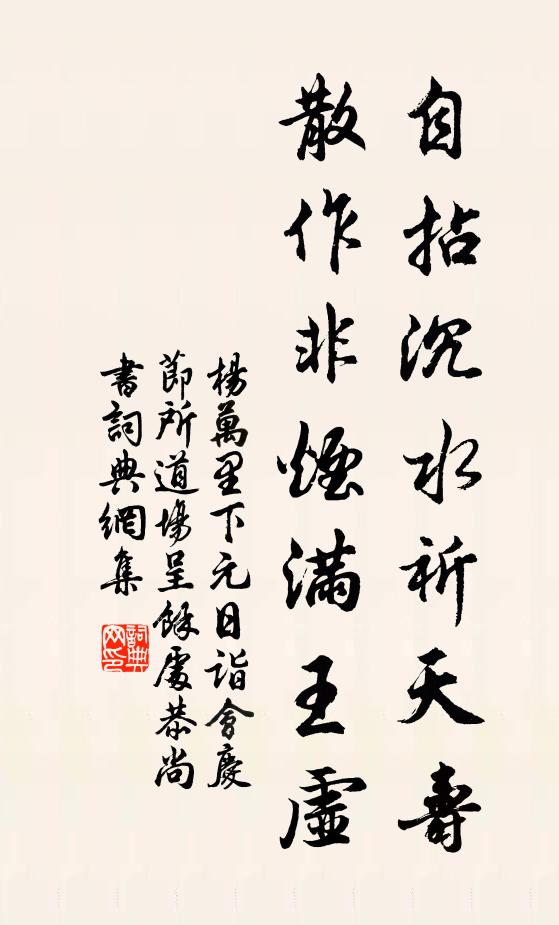 自拈沉水祈天壽
散作非煙滿王虛
楊萬里下元日詣會慶
節所道場呈餘處恭尚
書詞典網集
詞典網印